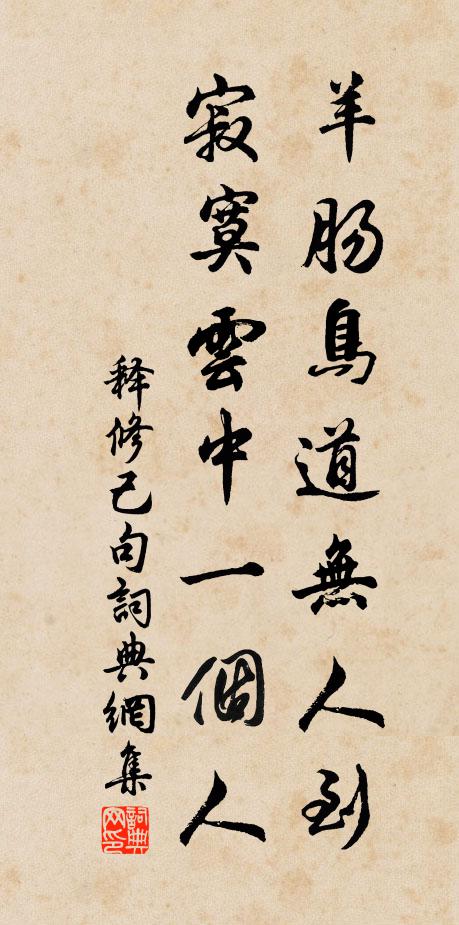 羊肠鳥道無人到
寂寞雲中一個人
释修己句詞典網集
詞典网印